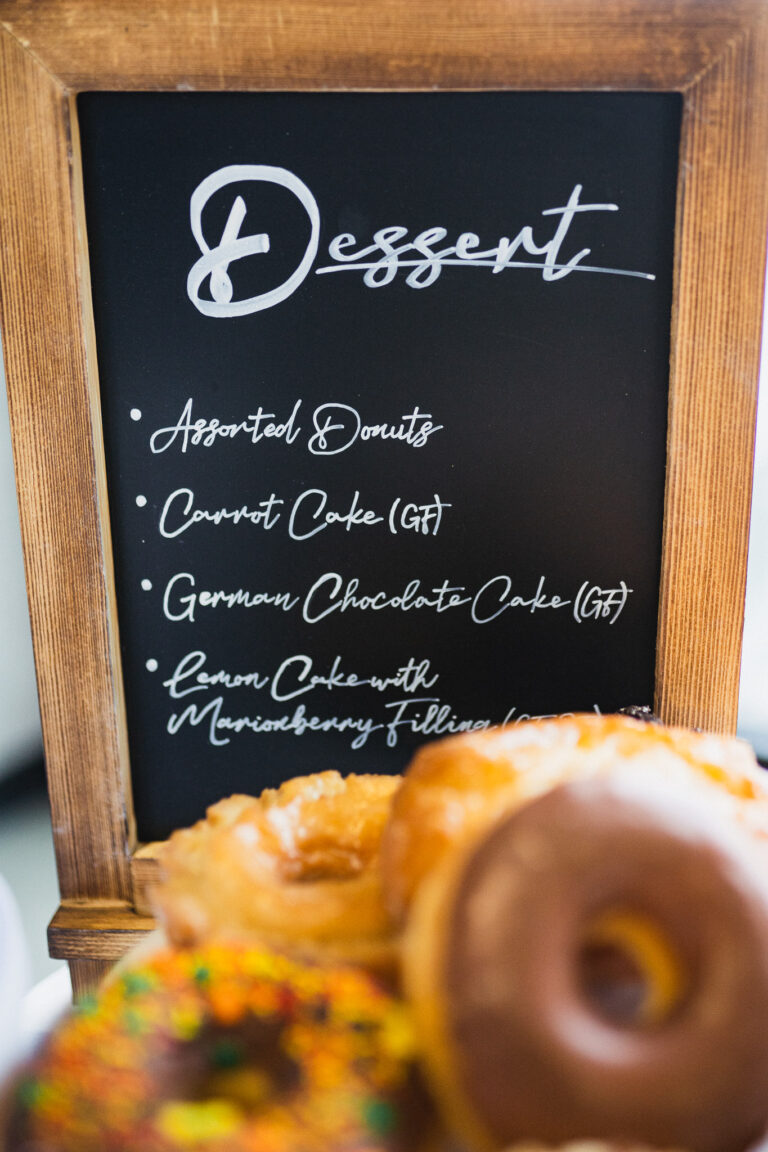 Dessert
• Assorted Donuts
• Carrot Cake (GF)
• German Chocolate Cake (GF)
• Lemon Cake with
Marionberry Filling